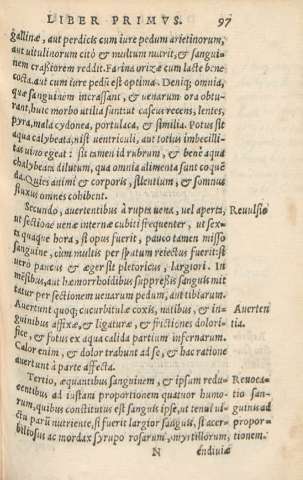 LIBER PRIMVS. 97
gallinæ, aut perdicis cum iure pedum arietinorum,
aut uitulinorum citò & multum nutrit, & sangui-
nem crassiorem reddit. Farina orizæ cum lacte bene
cocta, aut cum iure pedũ est optima. Deniq; omnia,
quæ sanguinem incrassant, & uenarum ora obtu-
rant, huic morbo utilia sunt: ut caseus recens, lentes,
pyra, mala cydonea, portulaca, & similia. Potus sit
aqua calybeata, nisi uentriculi, aut totius imbecilli-
tas uino egeat: sit tamen id rubrum, & benè aqua
chalybeata dilutum, qua omnia alimenta sunt coquẽ
da. Quies animi & corporis, silentium, & somnus
fluxus omnes cohibent.
Secundo, auertentibus à rupta uena, uel aperta, Reuulsio
ut sectione uenæ internæ cubiti frequenter, ut sex-
ta quaque hora, si opus fuerit, pauco tamen misso
sanguine, cum multis per sputum reiectus fuerit: si
uerò paucus & æger sit pletoricus, largiori. In
mẽsibus, aut hæmorrhoidibus suppressis sanguis mit
tatur per sectionem uenarum pedum, aut tibiarum.
Auertunt quoq; cucurbitulæ coxis, natibus, & in- Auerten
guinibus affixæ, & ligaturæ, & frictiones dolori- tia.
ficæ, & fotus ex aqua calida partium infernarum.
Calor enim, & dolor trahunt ad se, & hac ratione
auertunt à parte affecta.
Tertio, æquantibus sanguinem, & ipsum redu- Reuoca-
centibus ad iustam proportionem quatuor humo- tio san-
rum, quibus constitutus est sanguis ipse, ut tenui ul- guinis ad
ctu parũ nutriente, si fuerit largior sanguis, si acer- propor-
biliosus ac mordax syrupo rosarum, myrtillorum, tionem.
N endiuiæ